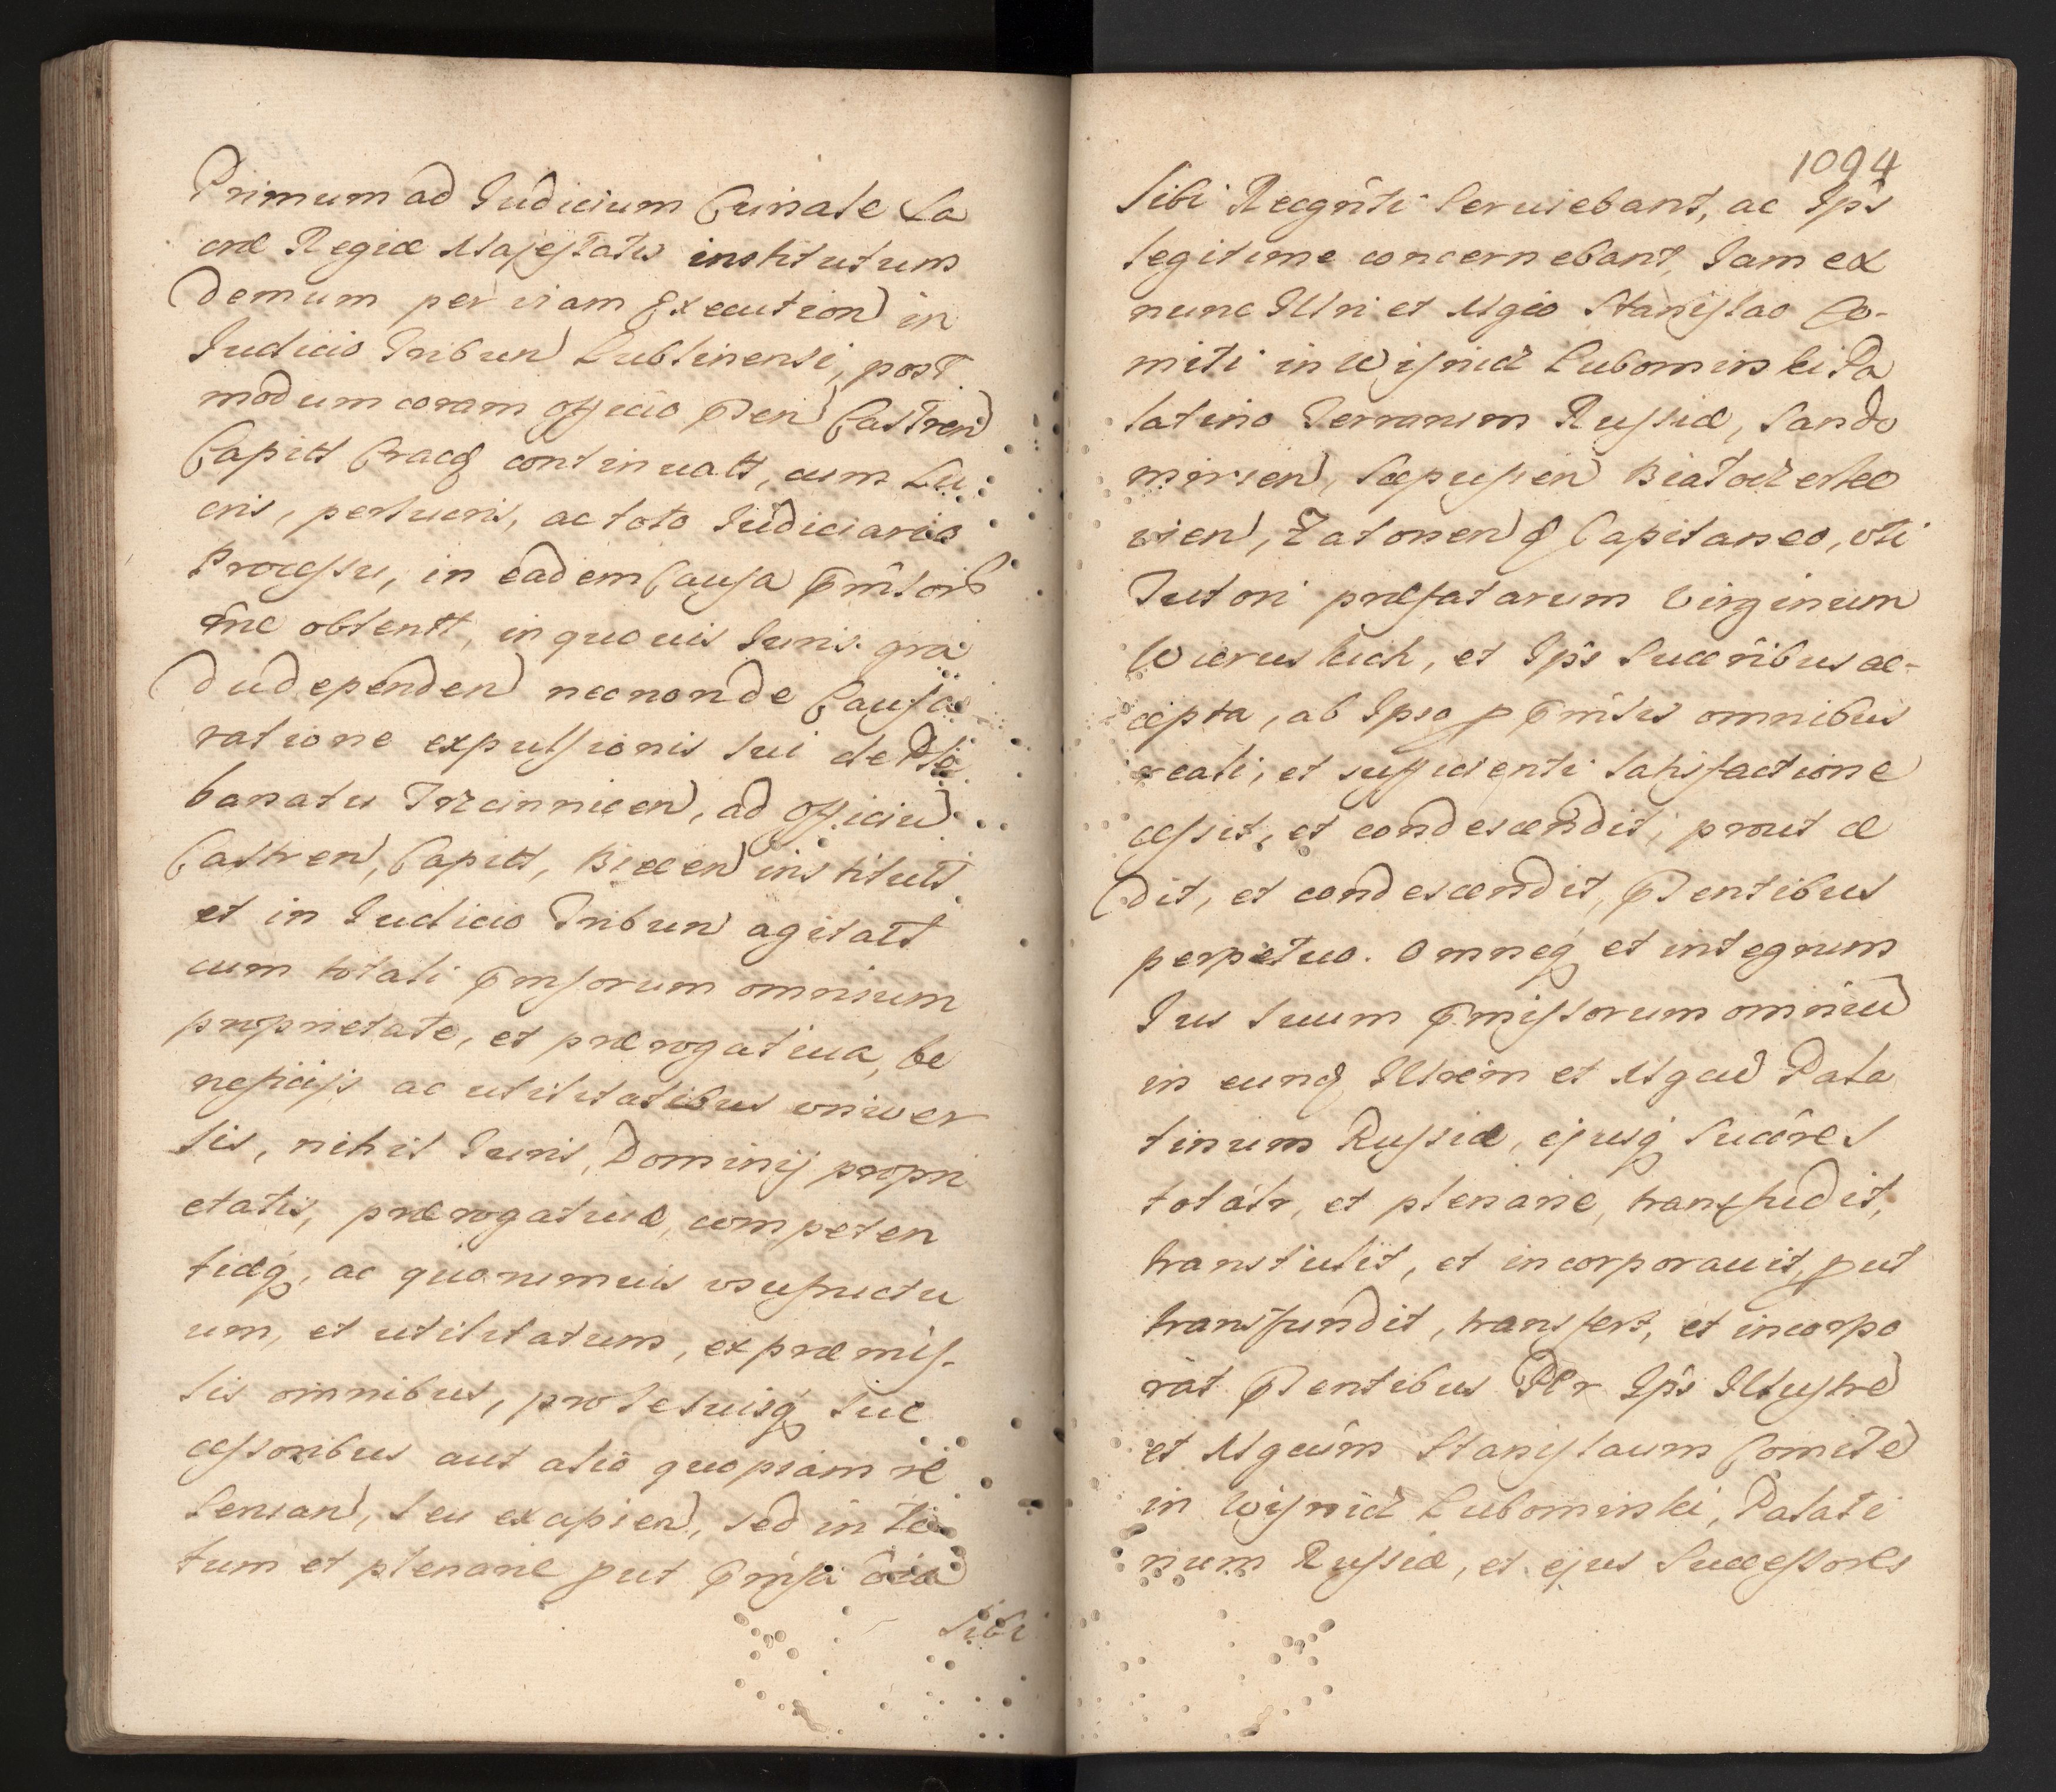 Primum ad Judicium Curiale Sa
cræ Regiæ Majestatis institutum
demum per viam Execution in
Judicio Tribun Lublinensi, post
modum coram officio Pñen Castren
Capitt Cracẽ continuatt, cum Lu
cris, perlucris, ac toto Judiciario
Processu, in eadem Causa
obtentt, in quovis Juris gra
du dependen necnon de Causa
ratione expulsionis sui de Ple
banatu Trzcinnicen, ad officiu
Castren, Capitt, Biecen institutt
et in Judicio Tribun agitatt
cum totali Pmissorum omnium
proprietate, et prærogativa, be
neficijs ac utilitatibus univer
sis, nihil Juris, Dominij propri
etatis, prærogativæ, competen
tiæq, ac quorumvis usufructu
um, et utilitatum, ex præmis-
sis omnibus, pro se suisq suc
cessoribus aut alio quopiam re
servan, seu excipien, sed in to
tum et plenarie put Pmissa oia
sibi
1094
sibi Recgnti serviebant, ac Ips
legitime concernebant, Jam ex
nunc Illri et Mgco Stanislao Co-
miti in Wisnicz Lubomirski Pa
latino Terrarum Russiæ, Sando
mirien, Scepusien Biatocerkie
vien, Zatorienq Capitaneo, uti
Tutori præfatarum Virginum
Wieruskich, et Ips Succribus ac-
cepta, ab Ipso p Pmissis omnibus
reali, et sufficienti satisfactione
cessit, et condescendit, prout ce
dit, et condescendit, Pntibus
perpetuo. Omneq et integrum
Jus suum Pmissorum omniu
in eund Illrem et Mgcu Pala
tinum Russiæ, ejusq Succres
totalr, et plenarie, transfudit,
transtulit, et incorporavit, put
transfundit, transfert, et incorpo
rat Pntibus Plr Ips Illustre
et Mgcum Stanislaum Comite
in Wisnicz Lubomirski, Palati
num Russiæ, et ejus Successores